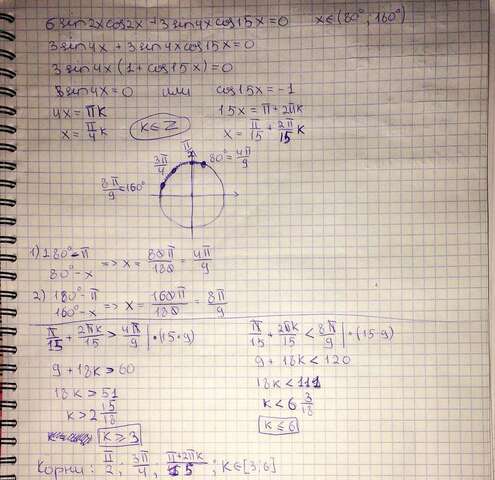 6 sin2x cos2x + 3 sin4x cos15x = 0 x ∈ (80°; 160°)
3 sin4x + 3 sin4x cos15x = 0
3 sin4x (1 + cos15x) = 0
3 sin4x = 0 или cos15x = -1
4x = πk 15x = π + 2πk
x = π/4 k k ∈ Z x = π/15 + 2π/15 k
π/2
3π/4 80° = 4π/9
8π/9 = 160°
1) 180° - π
80° - x => x = 80π/180 = 4π/9
2) 180° - π
160° - x => x = 160π/180 = 8π/9
π/15 + 2πk/15 > 4π/9 | ·(15·9) π/15 + 2πk/15 < 8π/9 | ·(15·9)
9 + 18k > 60 9 + 18k < 120
18k > 51 18k < 111
k > 2 15/18 k < 6 3/18
k ≥ 3 k ≤ 6
Корни: π/2; 3π/4; π+2πk/15; k ∈ [3; 6]